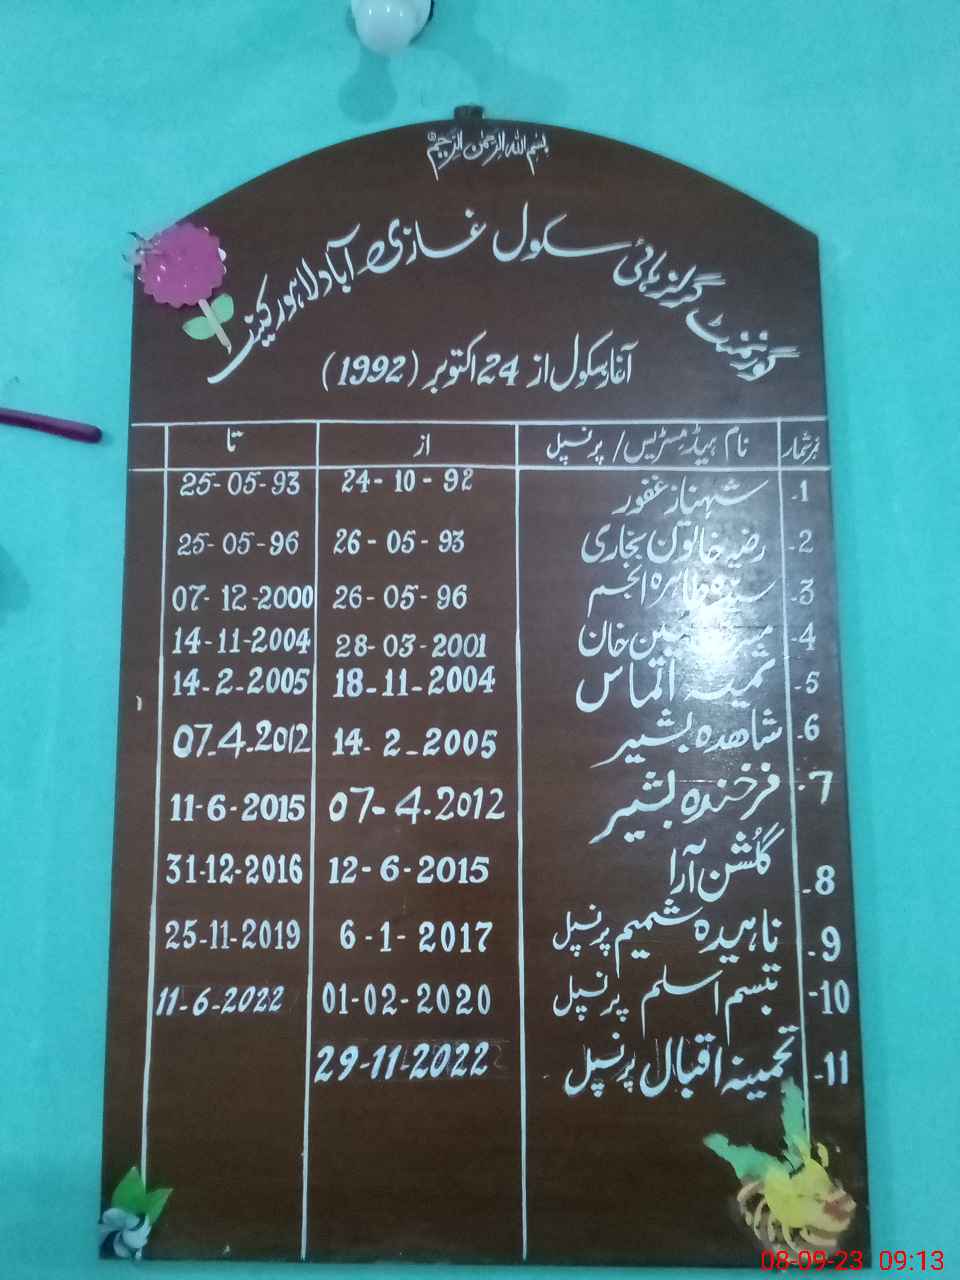 بسم اللہ الرحمٰن الرحیم
گورنمنٹ گرلز ہائی سکول غازی آباد لاہور کینٹ
آغاز سکول از 24 اکتوبر (1992)
نمبرشمار نام ہیڈمسٹریس/پرنسپل از تا
1- شہناز غفور 24-10-92 25-05-93
2- رضیہ خاتون بخاری 26-05-93 25-05-96
3- سیدہ طاہرہ انجم 26-05-96 07-12-2000
4- خان 28-03-2001 14-11-2004
5- ثمینہ الماس 18-11-2004 14-2-2005
6- شاھدہ بشیر 14-2-2005 07-4-2012
7- فرخندہ بشیر 07-4-2012 11-6-2015
8- گلشن آرا 12-6-2015 31-12-2016
9- ناہیدہ شمیم پرنسپل 6-1-2017 25-11-2019
10- تبسم اسلم پرنسپل 01-02-2020 11-6-2022
11- تحمینہ اقبال پرنسپل 29-11-2022
08-09-23 09:13